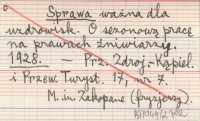 Sprawa ważna dla
uzdrowisk. O sezonową pracę
na prawach żniwiarzy.
1928. — Prz. Zdroj.-Kąpiel.
i Przew. Turyst. 17, nr. 7.
M. in. Zakopane (fryzjerzy).